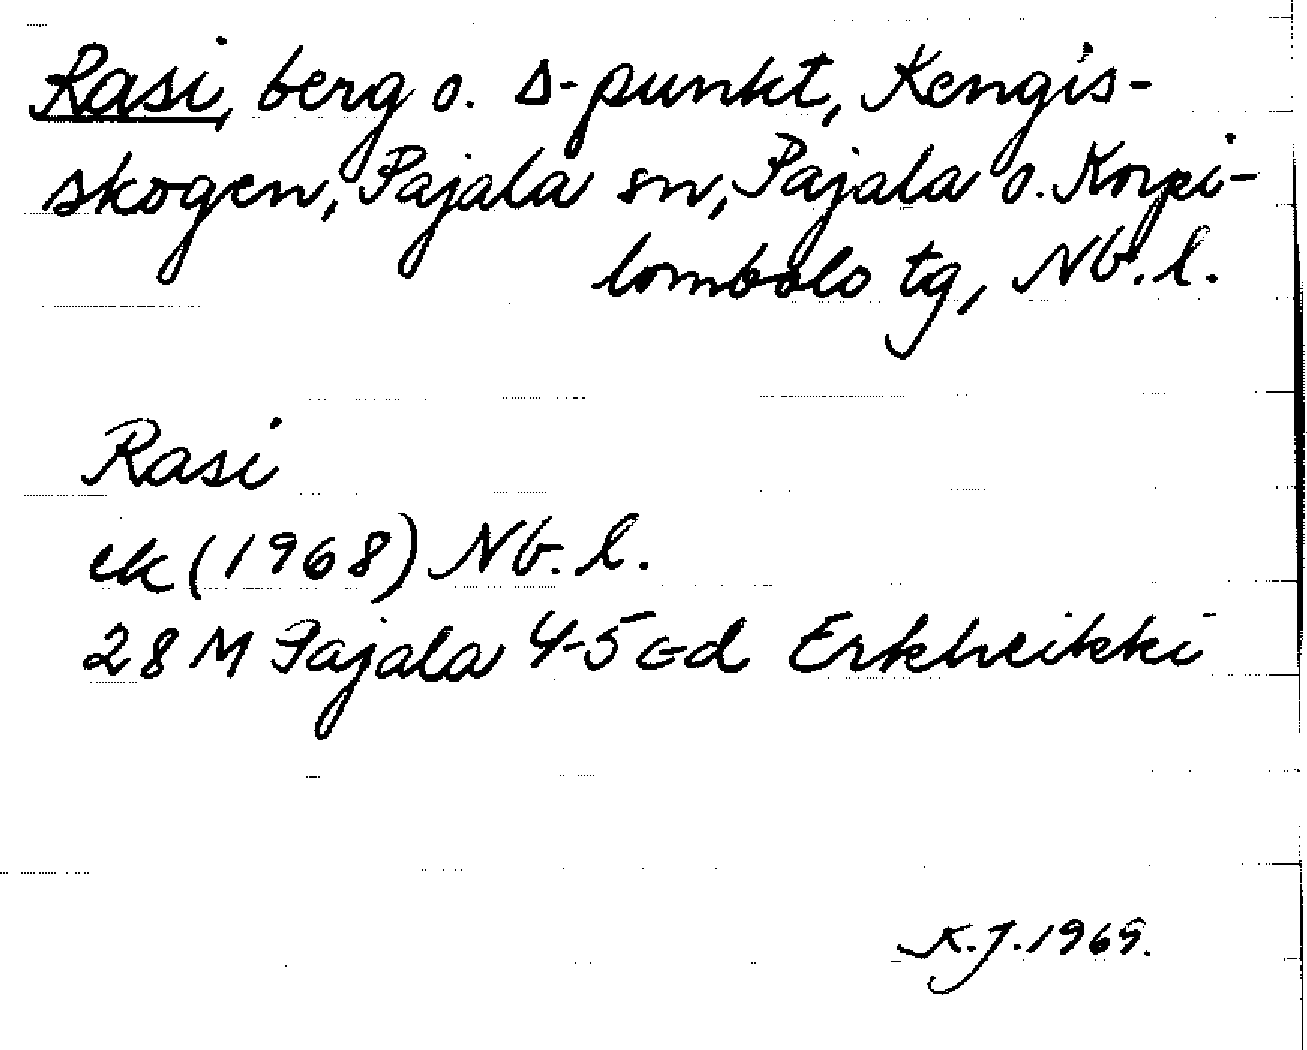 Rasi, berg o. Δ-punkt, Kengis-
skogen, Pajala sn, Pajala o. Korpi-
lombolo tg, Nb. l.
Rasi
ek (1968) Nb. l.
28 M Pajala 4-5 c-d Erkheikki
K.J. 1969.